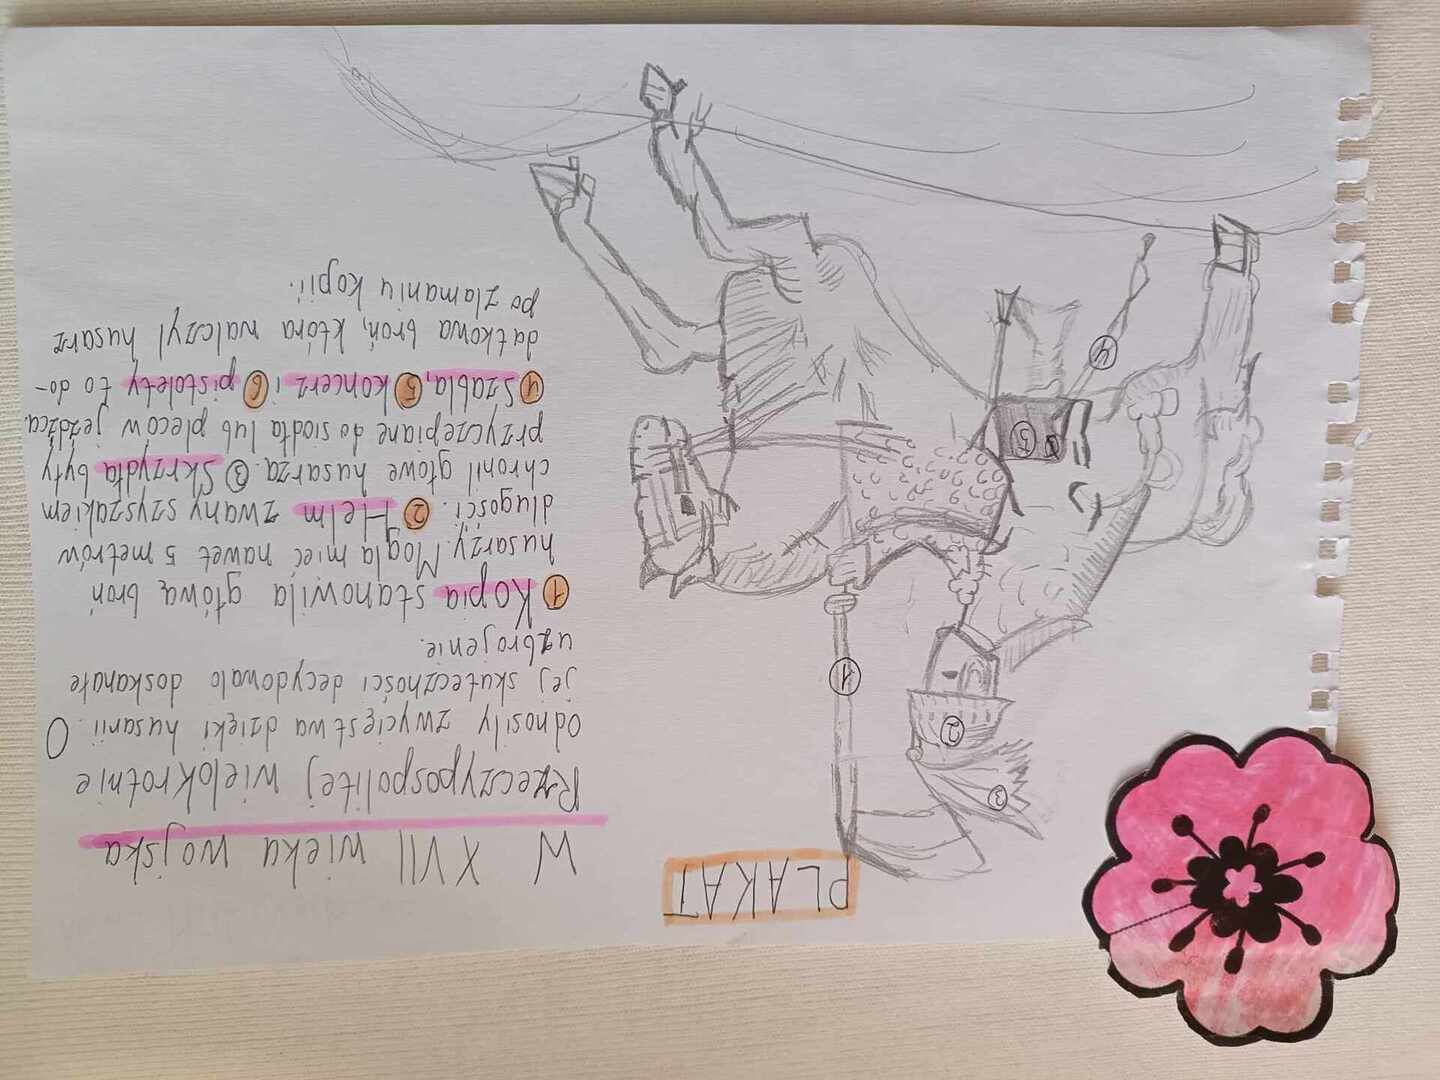 PLAKAT
W XVII wieku wojska
Rzeczypospolitej wielokrotnie
odnosiły zwycięstwa dzięki husarii. O
jej skuteczności decydowało doskonałe
uzbrojenie.
1 Kopia stanowiła główą broń
husarzy. Mogła mieć nawet 5 metrów
długości. 2 Hełm zwany szyszakiem
chronił głowę husarza. 3 Skrzydła były
przyczepiane do siodła lub pleców jeźdźca.
4 Szabla, 5 koncerz i 6 pistolety to do-
datkowa broń, którą walczył husarz
po złamaniu kopii.
3
2
1
5
4